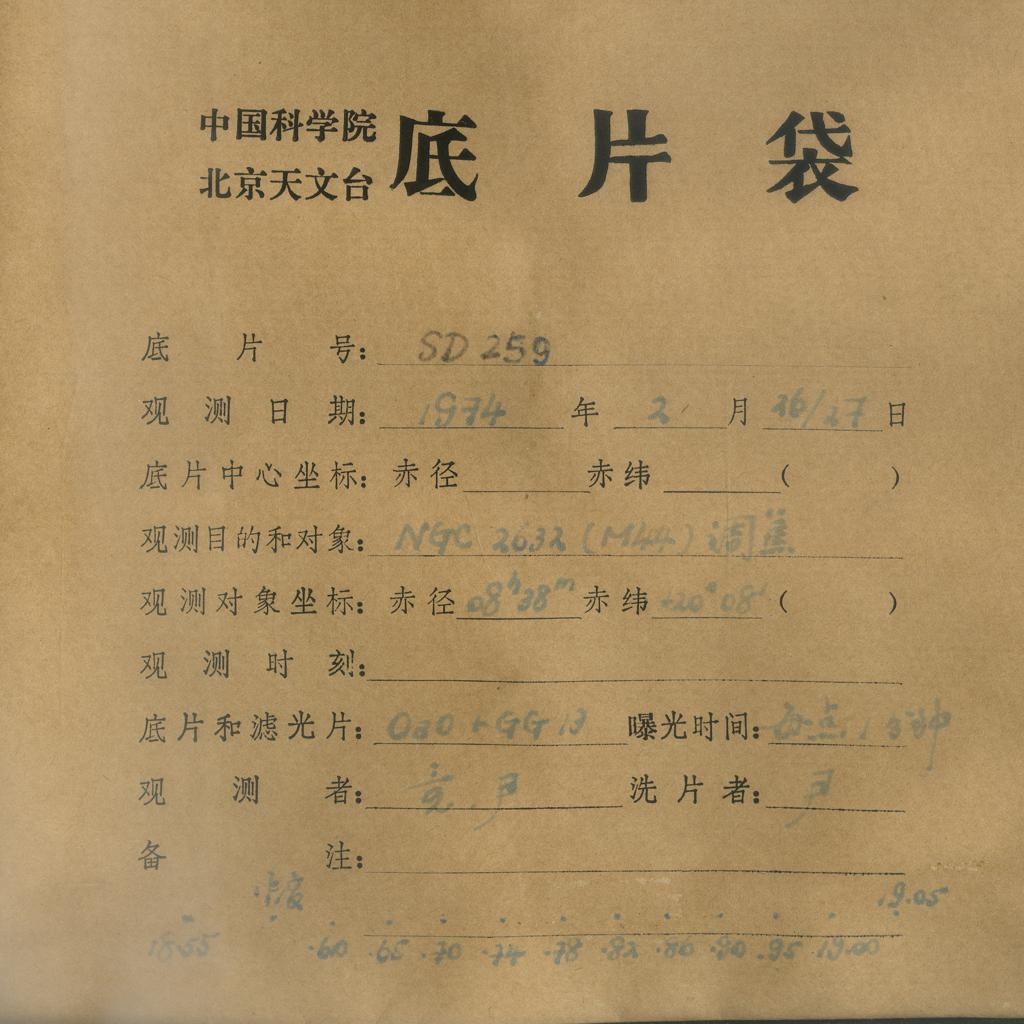 中国科学院
北京天文台 底片袋
底片号: SD 259
观测日期: 1974 年 2 月 26/27 日
底片中心坐标: 赤径 赤纬 ( )
观测目的和对象: NGC 2632 (M44) 调焦
观测对象坐标: 赤径 08h38m 赤纬 +20°08' ( )
观测时刻:
底片和滤光片: OaO + GG13 曝光时间: 每点1分钟
观测者: 竞、尹 洗片者: 尹
备注:
19.05
18.55 .60 .65 .70 .74 .78 .82 .90 .95 19.00